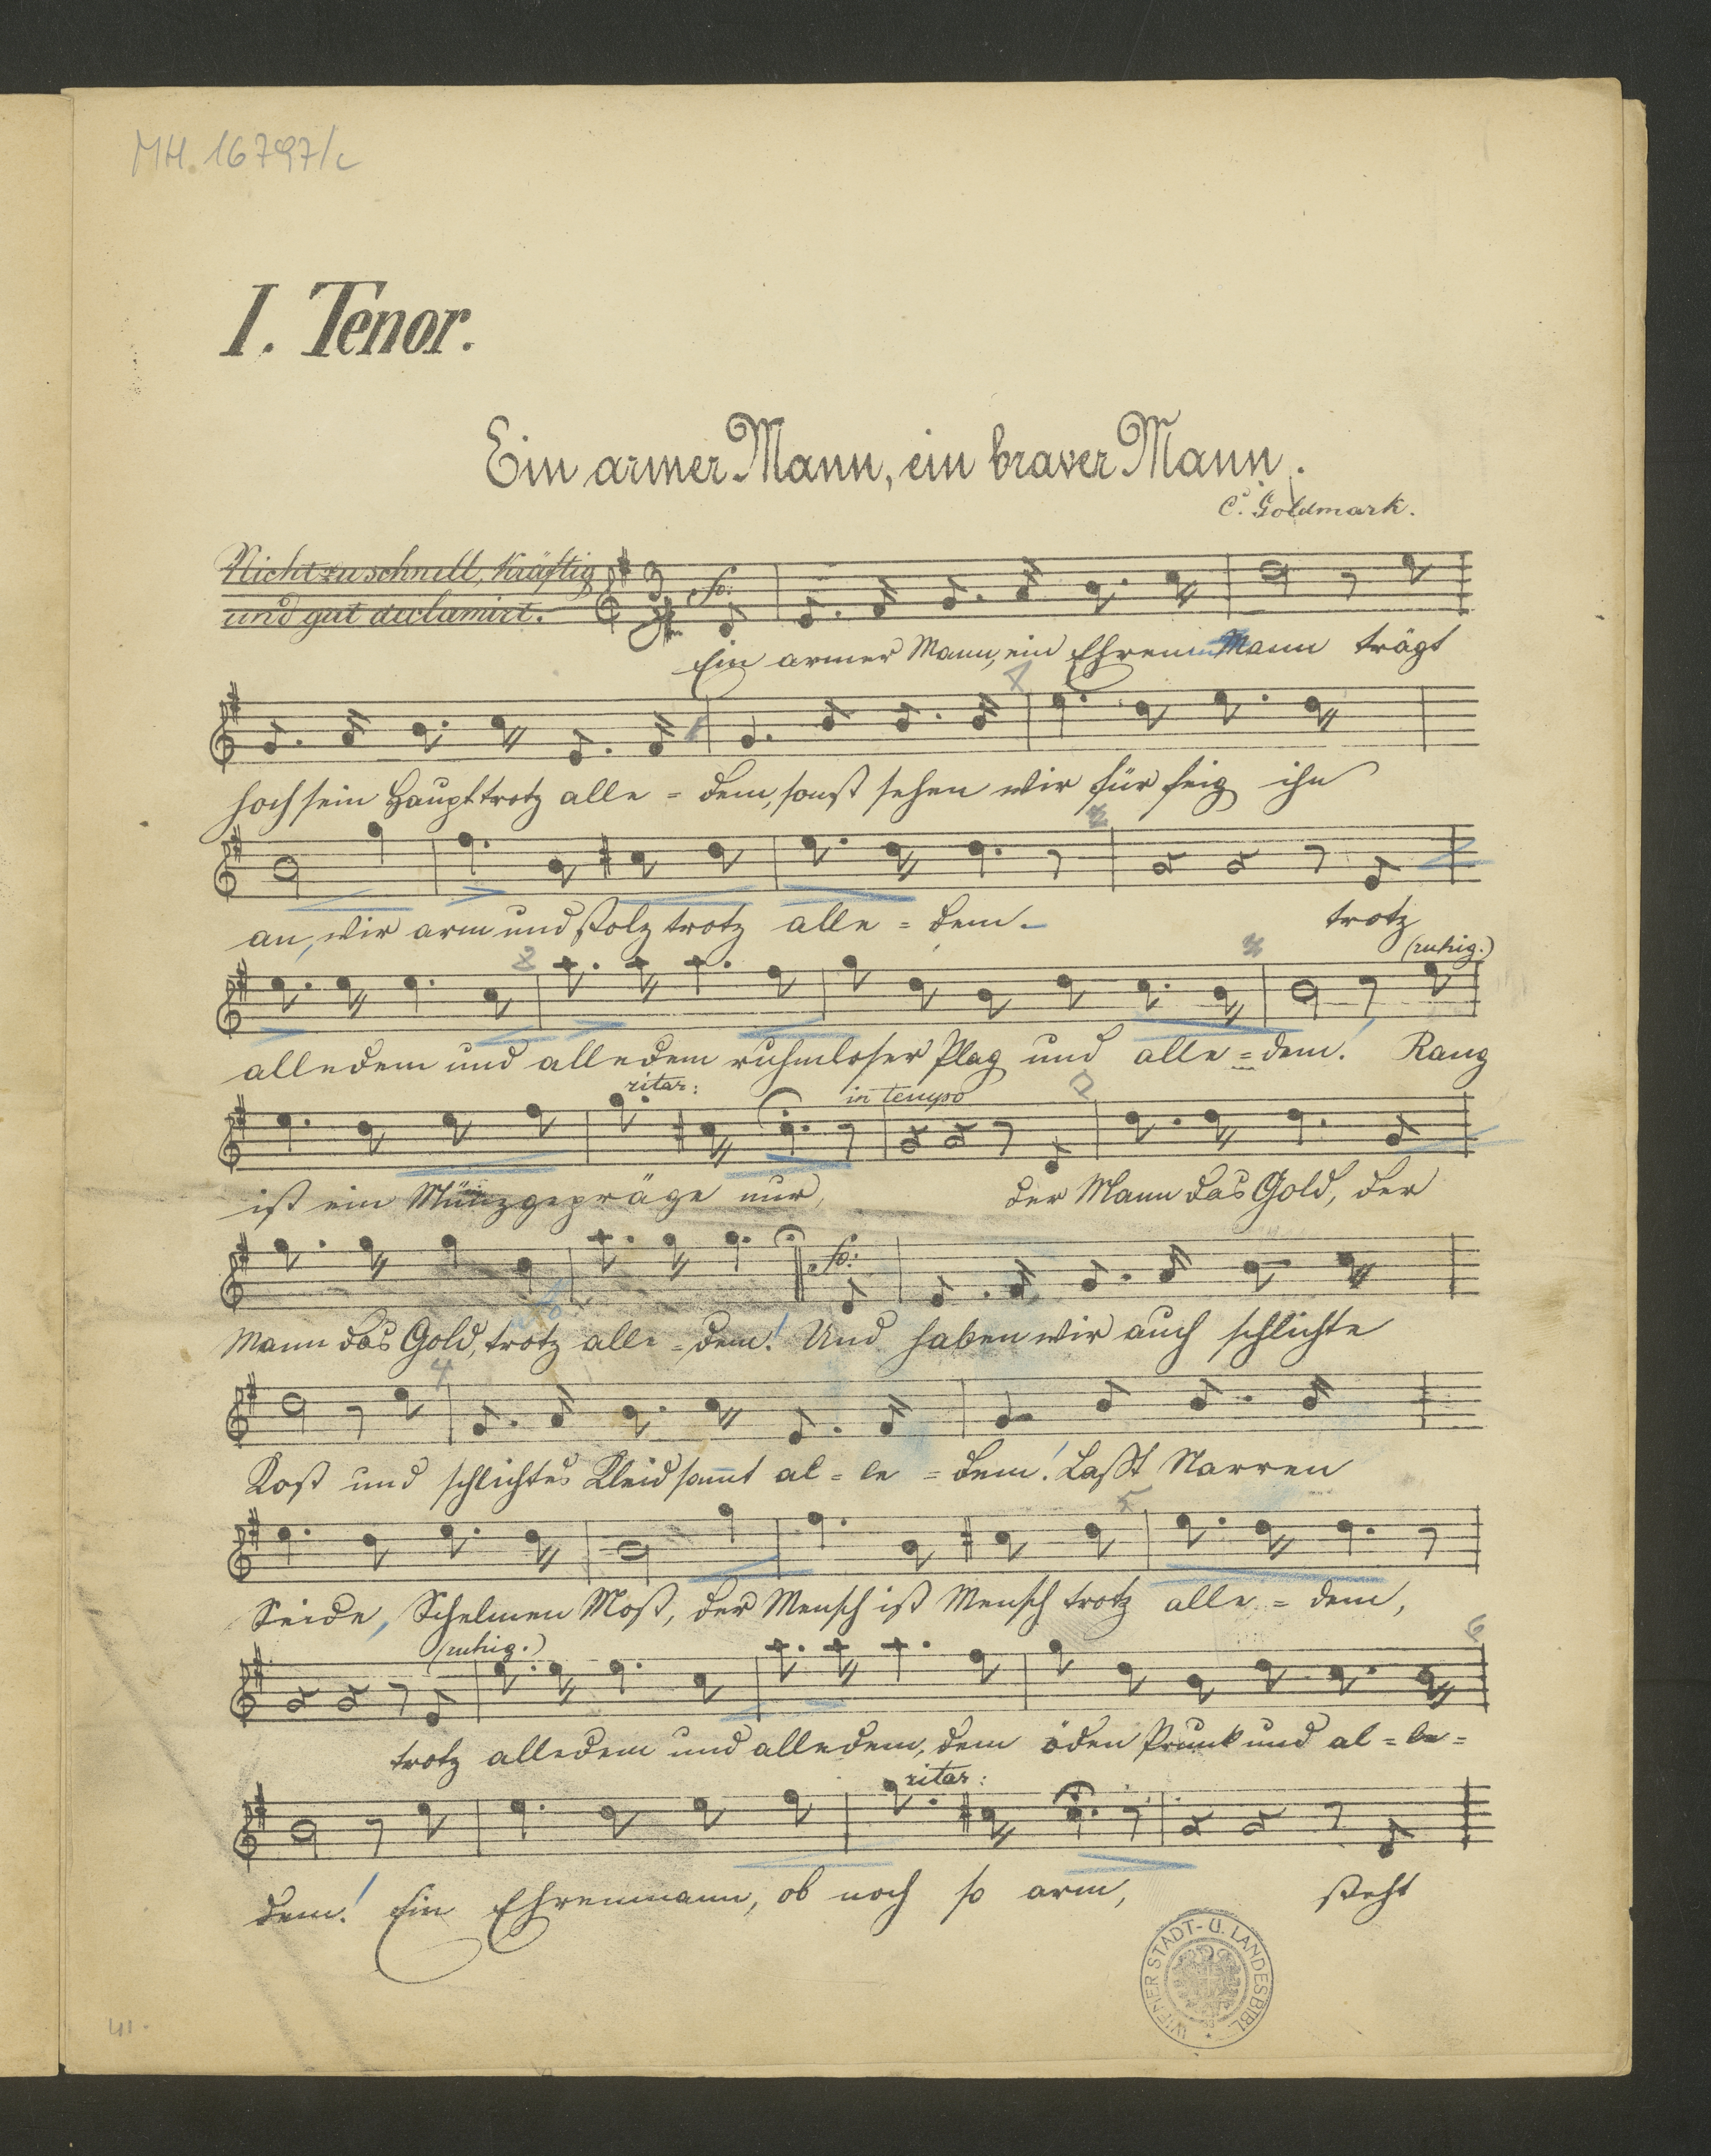 MH. 16797/c
I. Tenor.
Ein armer Mann, ein braver Mann.
C. Goldmark.
Nicht zu schnell, kräftig
und gut declamirt.
Ein armer Mann, ein Ehrenmann trägt
hoch sein Haupt trotz alle = dem, sonst sehen wir für feig ihn
an, wir arm und stolz trotz alle = dem. trotz
(ruhig.)
alledem und alledem ruhmloser Plag und alle = dem! Rang
ritar: in tempo
ist ein Münzgepräge nur, der Mann das Gold, der
Mann das Gold, trotz alle = dem! Und haben wir auch schlichte
4
Kost und schlichtes Kleid sammt al = le = dem! Laßt Narren
5
Seide, Schelmen Most, der Mensch ist Mensch trotz alle = dem,
(ruhig.) 6
trotz alledem und alledem, dem öden Prunk und al = le =
ritar:
dem! Ein Ehrenmann, ob noch so arm, steht
WIENER STADT- U. LANDESBIBL.